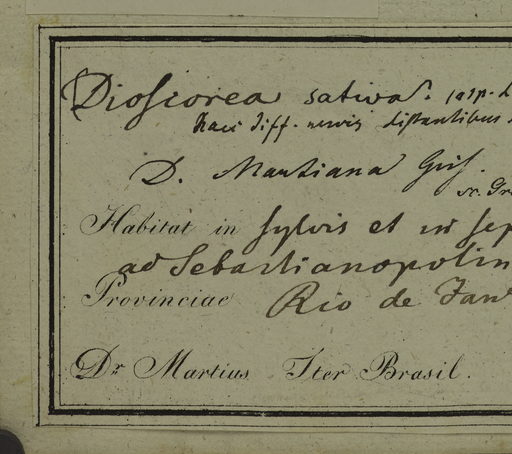 Dioscorea sativa.
diff. nervis distantibus
D. Martiana Gris.
Habitat in sylvis et in sep
ad Sebastianopolin
Provinciae Rio de Jan
Dr Martius Iter Brasil.